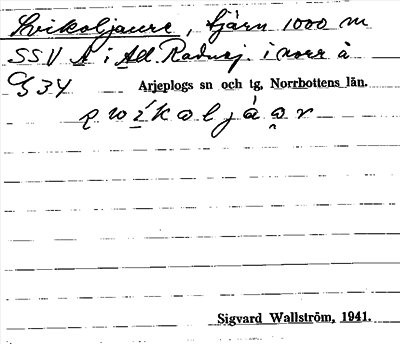 Svikoljaure, tjärn 1000 m
SSV A i All. Radnej. i norr å
G 34 Arjeplogs sn och tg, Norrbottens län.
Sigvard Wallström, 1941.